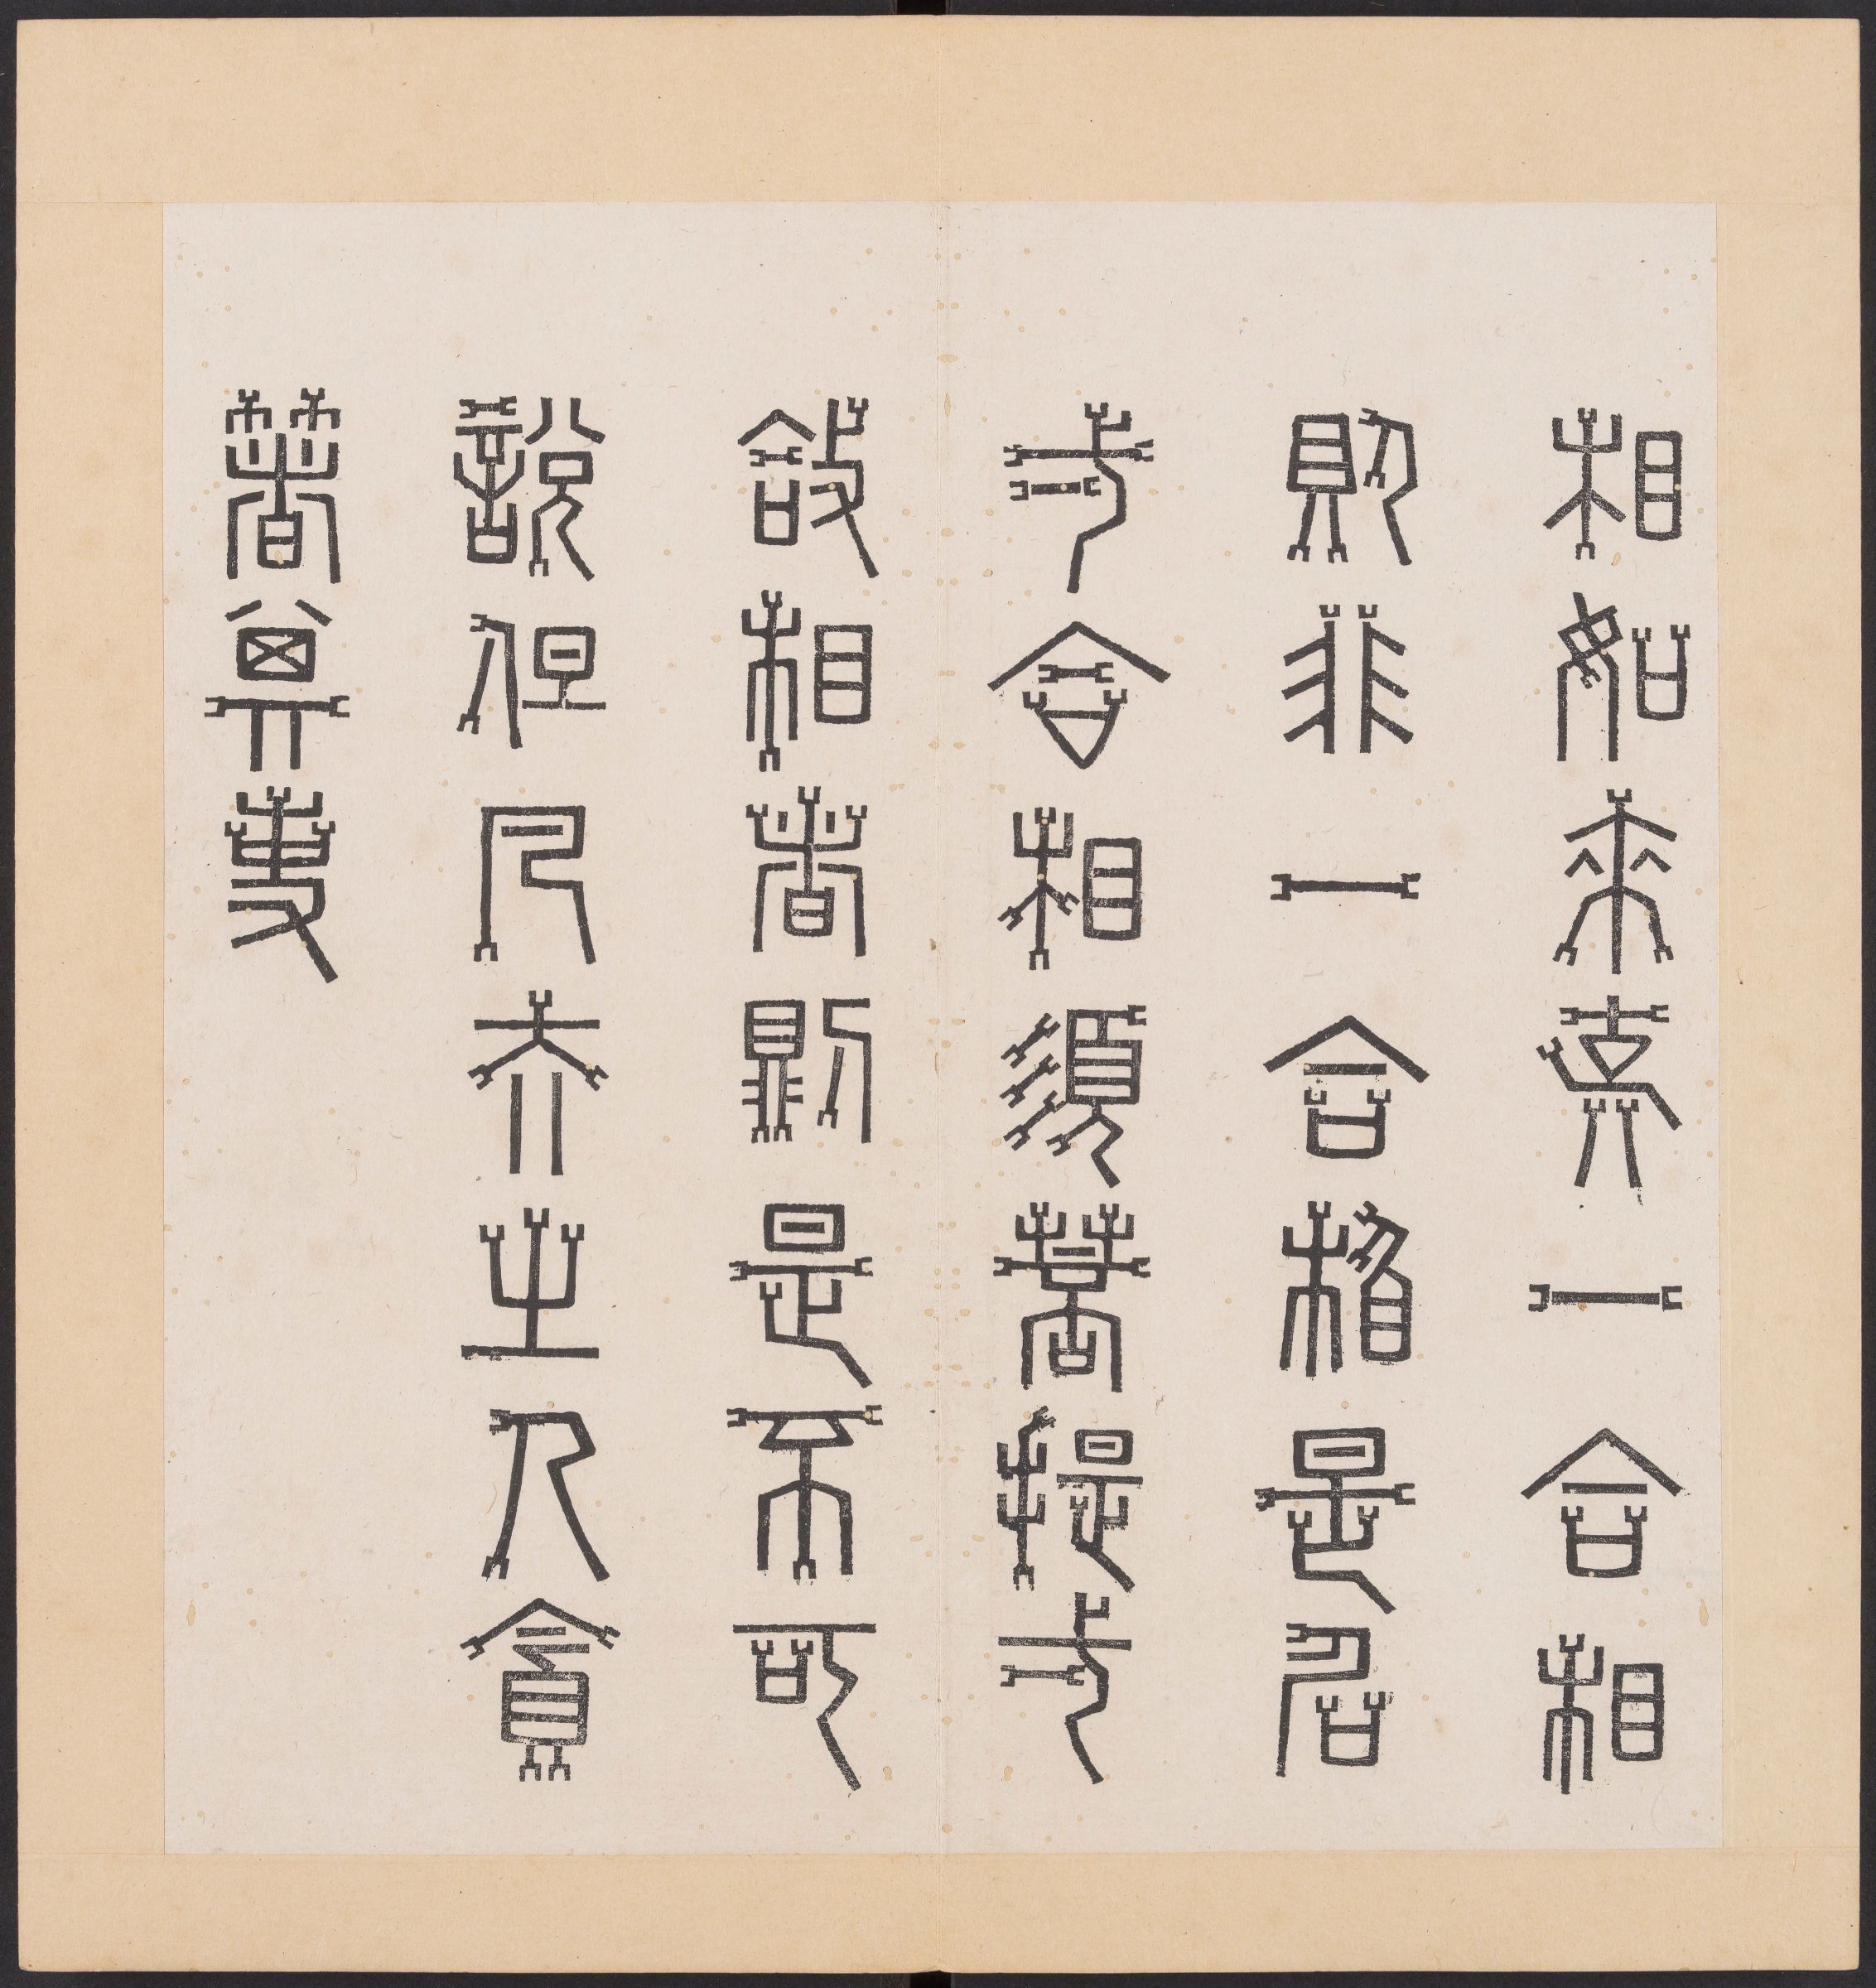 相如來說一合相
則非一合相是名
一合相須菩提一
合相者則是不可
說但凡夫之人貪
著其事